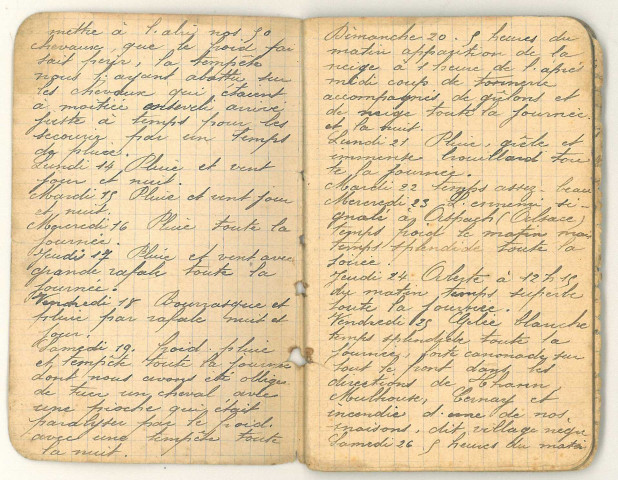 mettre à l'abri nos 50
chevaux, que le froid fai
sait périr, la tempête
nous ayant abattu sur
les chevaux qui étaient
à moitiée enseveli arrivé
juste à temps pour les
secourir par un temps
de pluie.
Lundi 14 Pluie et vent
jour et nuit.
Mardi 15 Pluie et vent jour
et nuit.
Mercredi 16 Pluie toute la
journée.
Jeudi 17 Pluie et vent avec
grande rafale toute la
journée.
Vendredi 18 Bourrasque et
pluie par rafale nuit et
jour.
Samedi 19, froid, pluie
et tempête toute la journée
dont nous avons été obligé
de tuer un cheval avec
une pioche qui était
paralyser par le froid.
avec une tempête toute
la nuit.
Dimanche 20. 5 heures du
matin apparition de la
neige à 1 heure de l'après
midi coup de tonnerre
accompagnés de grêlons et
de neige toute la journée.
et la nuit
Lundi 21 Pluie, grêle et
immense brouillard tou
te la journée.
Mardi 22 temps assez beau
Mercredi 23 L'ennemi si-
gnalé à Aspach (Alsace)
temps froid le matin mais
temps splendide toute la
soirée.
Jeudi 24 Alerte à 12h15
du matin temps superbe
toute la journée.
Vendredi 25 Gelée blanche
temps splendide toute la
journée, forte canonade sur
tout le front dans les
directions de Thann,
Mulhouse, Cernay et
incendie d'une de nos
maisons, dit village nègre
Samedi 26 5 heures du matin